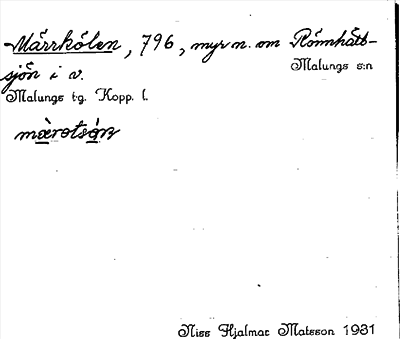 Märrkölen, 796, myr n. om Rönnhått-
sjön i v.
Malungs s:n
Malungs tg. Kopp. l.
Niss Hjalmar Matsson 1931